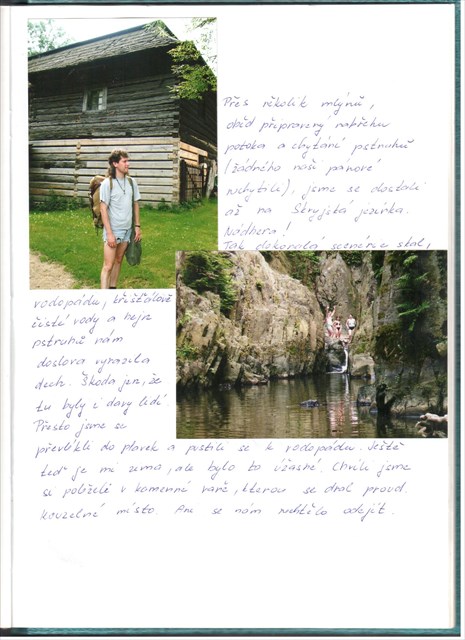 Přes několik mlýnů,
oběd připravený na břehu
potoka a chytání pstruhů
(žádného naši pánové
nechytili), jsme se dostali
až na Skryjská jezírka.
Nádhera!
Tak dokonalá scenérie skal,
vodopádu, křišťálově
čisté vody a hejn
pstruhů nám
doslova vyrazila
dech. Škoda jen, že
tu byly i davy lidí.
Přesto jsme se
převlékli do plavek a pustili se k vodopádu. Ještě
teď je mi zima, ale bylo to úžasné. Chvíli jsme
si poleželi v kamenné vaně, kterou se dral proud.
Kouzelné místo. Ani se nám nechtělo odejít.